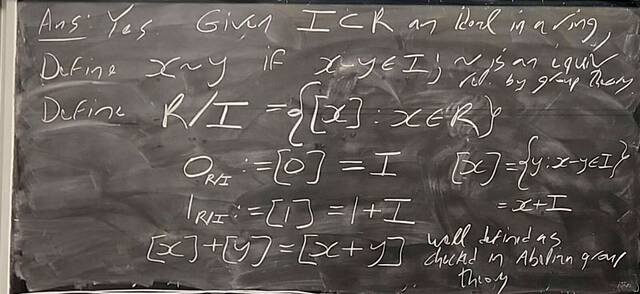 Ans: Yes. Given I ⊂ R an Ideal in a ring,
Define x~y if x-y∈I; ~ is an equiv
rel. by group theory
Define R/I = {[x] : x∈R}
0_{R/I} := [0] = I [x] = {y : x-y∈I}
1_{R/I} := [1] = 1+I = x+I
[x]+[y] = [x+y] well defined as
checked in Abelian group
theory